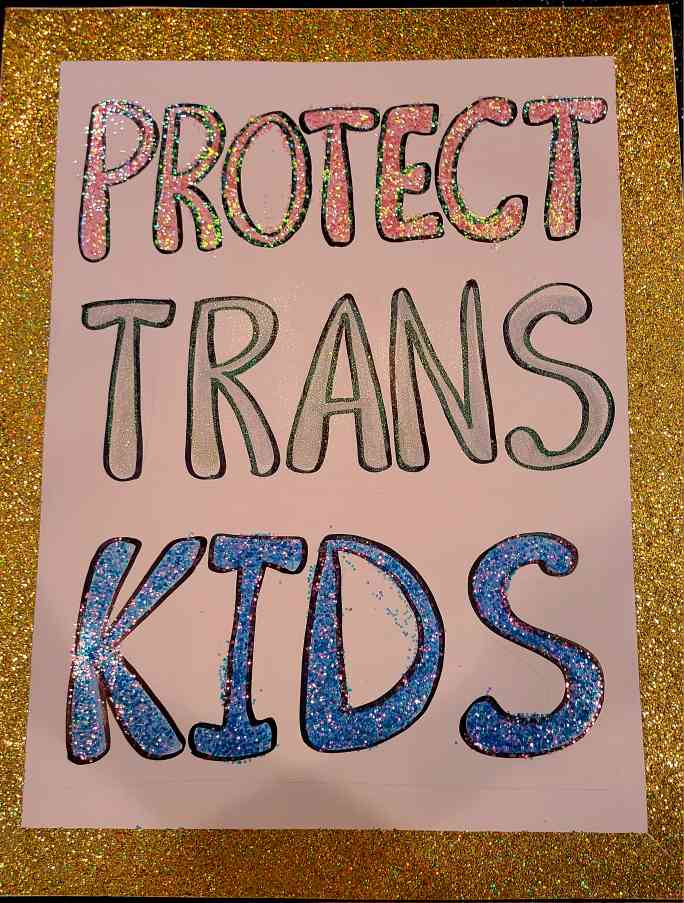 PROTECT
TRANS
KIDS